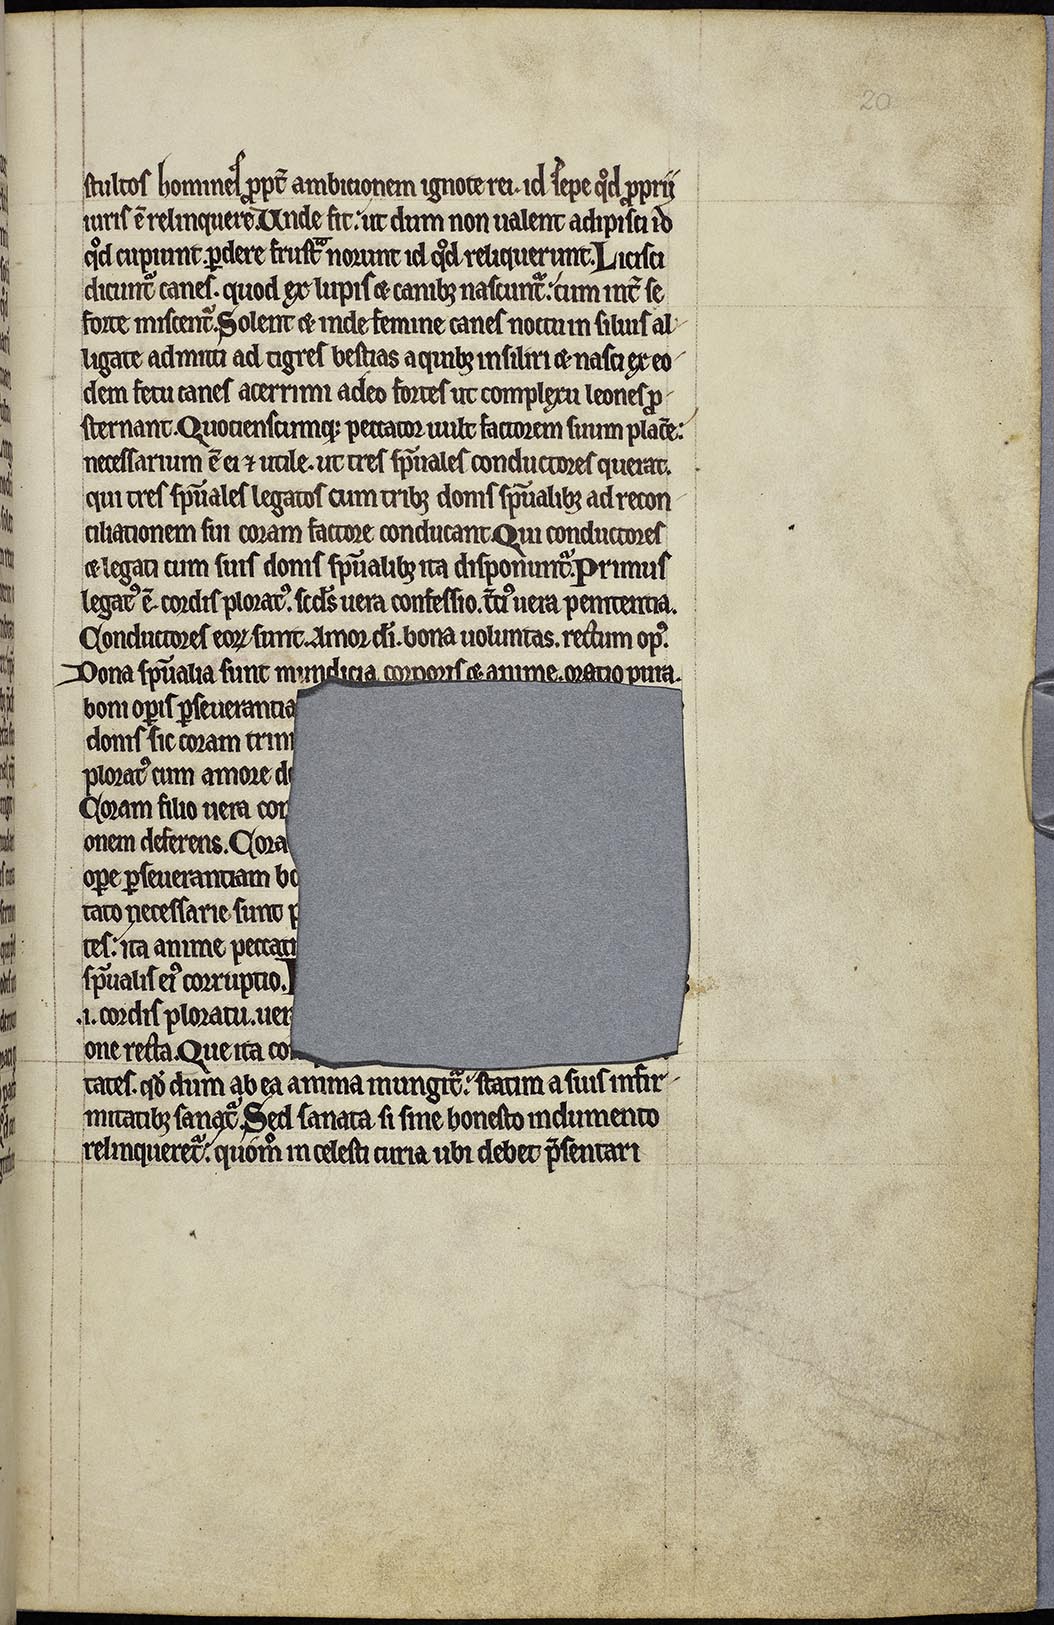 20
stultos homines ꝓpt̄ ambicionem ignote rei. id sepe qͦd ꝓprij
iuris ē relinquere. Unde fit: ut dum non ualent adipisci id
qͦd cupiunt. ꝑdere frustͣ norunt id qͦd reliquerunt. Licisci
dicuntᷓ canes. quod ex lupis & canibꝫ nascuntᷓ: cum int̄ se
forte miscentᷓ. Solent & inde femine canes noctu in siluis al-
ligate admitti ad tigres bestias a quibꝫ insiliri & nasci ex eo-
dem fetu canes acerrimi adeo fortes ut complexu leones ꝓ-
sternant. Quocienscumqꝫ peccator uult factorem suum placare:
necessarium ē ei ⁊ utile. ut tres sp̄uales conductores querat.
qui tres sp̄uales legatos cum tribꝫ donis sp̄ualibꝫ ad recon-
ciliationem sui coram factore conducant. Qui conductores
& legati cum suis donis sp̄ualibꝫ ita disponuntᷓ. Primus
legatꝰ ē. cordis ploratꝰ. scds̄ uera confessio. t̄ciꝰ uera penitentia.
Conductores eoꝝ sunt. Amor di̅. bona uoluntas. rectum opꝰ.
Dona sp̄ualia sunt mundicia corporis & anime. oratio pura.
boni oꝑis ꝑseuerantia
donis sic coram trini
ploratꝰ cum amore d
Coram filio uera con
onem deferens. Cora
ope ꝑseuerantiam bo
tato necessarie sunt p
tes: ita anime peccati
sp̄ualis eiꝰ corruptio.
.i. cordis ploratu. uer
one recta. Que ita co
tates. qd̓ dum ab ea anima mungitᷓ: statim a suis infir-
mitatibꝫ sanatᷓ. Sed sanata si sine honesto indumento
relinqueretᷓ: quom̊ in celesti curia ubi debet p̄sentari